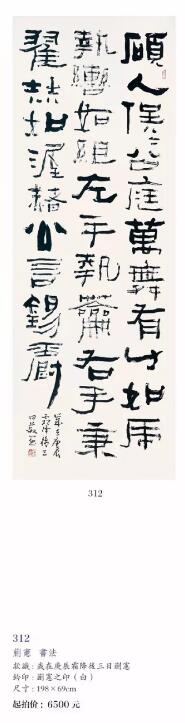 碩人俣俣公庭萬舞有力如虎
執轡如組左手執籥右手秉
翟赫如渥赭公言錫爵
歲在庚辰
霜降後三
日蒯憲
312
312
蒯憲 書法
款識:歲在庚辰霜降後三日蒯憲
鈐印:蒯憲之印(白)
尺寸:198×69cm
起拍价:6500 元